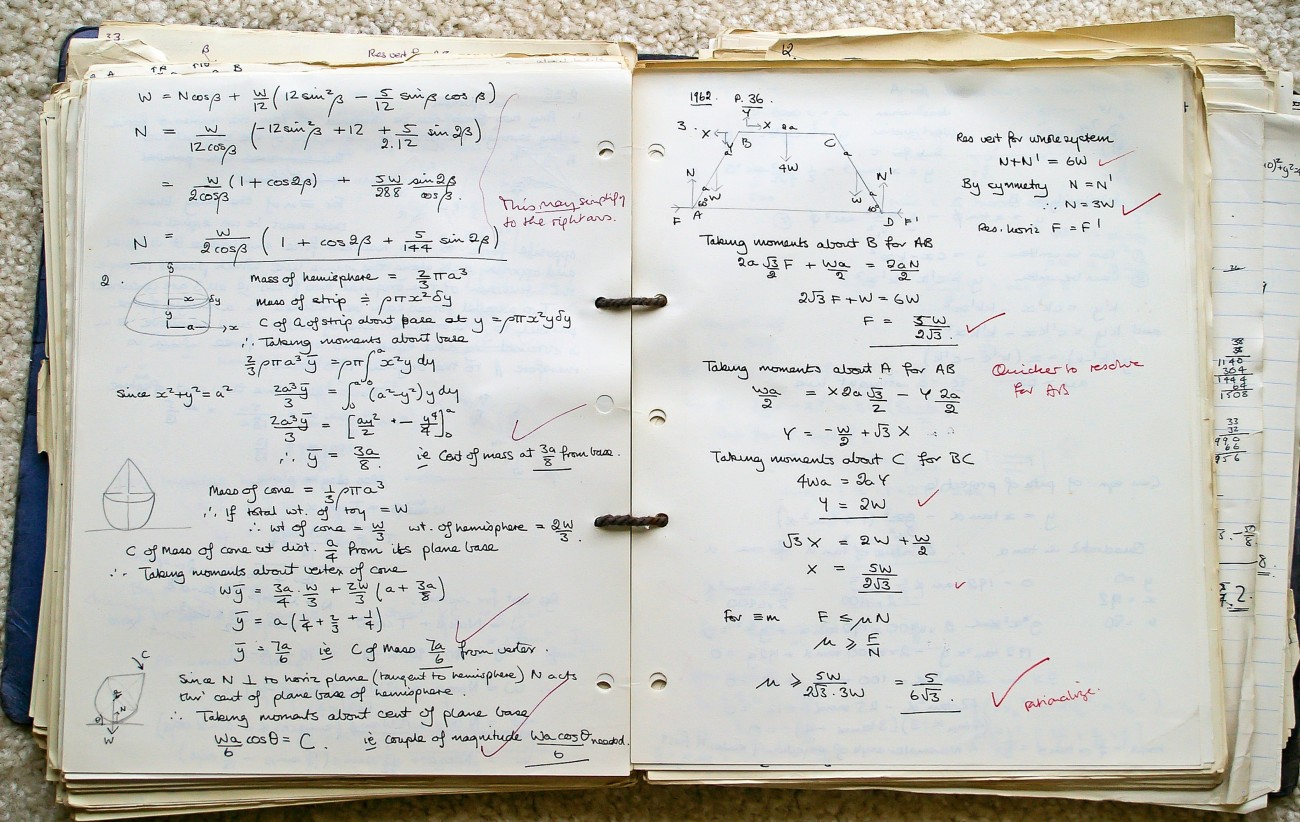 33.
β
Res vert
A B
W = Ncosβ + W/12 (12 sin²β − 5/12 sinβ cosβ)
N = W/12cosβ (−12sin²β + 12 + 5/2.12 sin2β)
= W/2cosβ (1 + cos2β) + 5W/288 sin2β/cosβ.
This may simplify
to the right ans.
N = W/2cosβ (1 + cos2β + 5/144 sin2β)
2.
y
x δy
y
a → x
Mass of hemisphere = 2/3 πa³
Mass of strip ≑ ρπx²δy
C of G of strip about base at y = ρπx²yδy
∴ Taking moments about base
2/3 ρπa³ȳ = ρπ∫₀ᵃ x²y dy
since x²+y² = a² 2a³ȳ/3 = ∫₀ᵃ (a²−y²) y dy
2a³ȳ/3 = [ay²/2 + − y⁴/4]₀ᵃ
∴ ȳ = 3a/8. ie Cent of mass at 3a/8 from base.
Mass of cone = 1/3 ρπa³
∴ If total wt. of toy = W
∴ wt of cone = W/3 wt. of hemisphere = 2W/3.
C of Mass of cone at dist. a/4 from its plane base
∴ Taking moments about vertex of cone
Wȳ = 3a/4 . W/3 + 2W/3 (a + 3a/8)
ȳ = a(1/4 + 2/3 + 1/4)
ȳ = 7a/6 ie C of Mass 7a/6 from vertex.
C
N
W
Since N ⊥ to horiz plane (tangent to hemisphere) N acts
thro' cent of plane base of hemisphere.
∴ Taking moments about cent of plane base
Wa/6 cosθ = C. ie couple of magnitude Wa cosθ/6 needed.
12.
1962. P. 36.
3.
Y
X X 2a
B C
a a
4W
N N'
a W W a
60° 60°
F A D F'
Res vert for whole system
N+N' = 6W
By symmetry N = N'
∴ N = 3W
Res. horiz F = F'
Taking moments about B for AB
2a √3/2 F + Wa/2 = 2aN/2
2√3 F + W = 6W
F = 5W/2√3.
Taking moments about A for AB
Quicker to resolve
for AB
Wa/2 = X 2a √3/2 − Y 2a/2
Y = −W/2 + √3 X
Taking moments about C for BC
4Wa = 2aY
Y = 2W
√3 X = 2W + W/2
X = 5W/2√3
For ≡m F ≤ μN
μ ≥ F/N
μ ≥ 5W/2√3.3W = 5/6√3.
rationalize.
38
38
1140
304
1444
64
1508
33
32
990
66
956
8.
2.